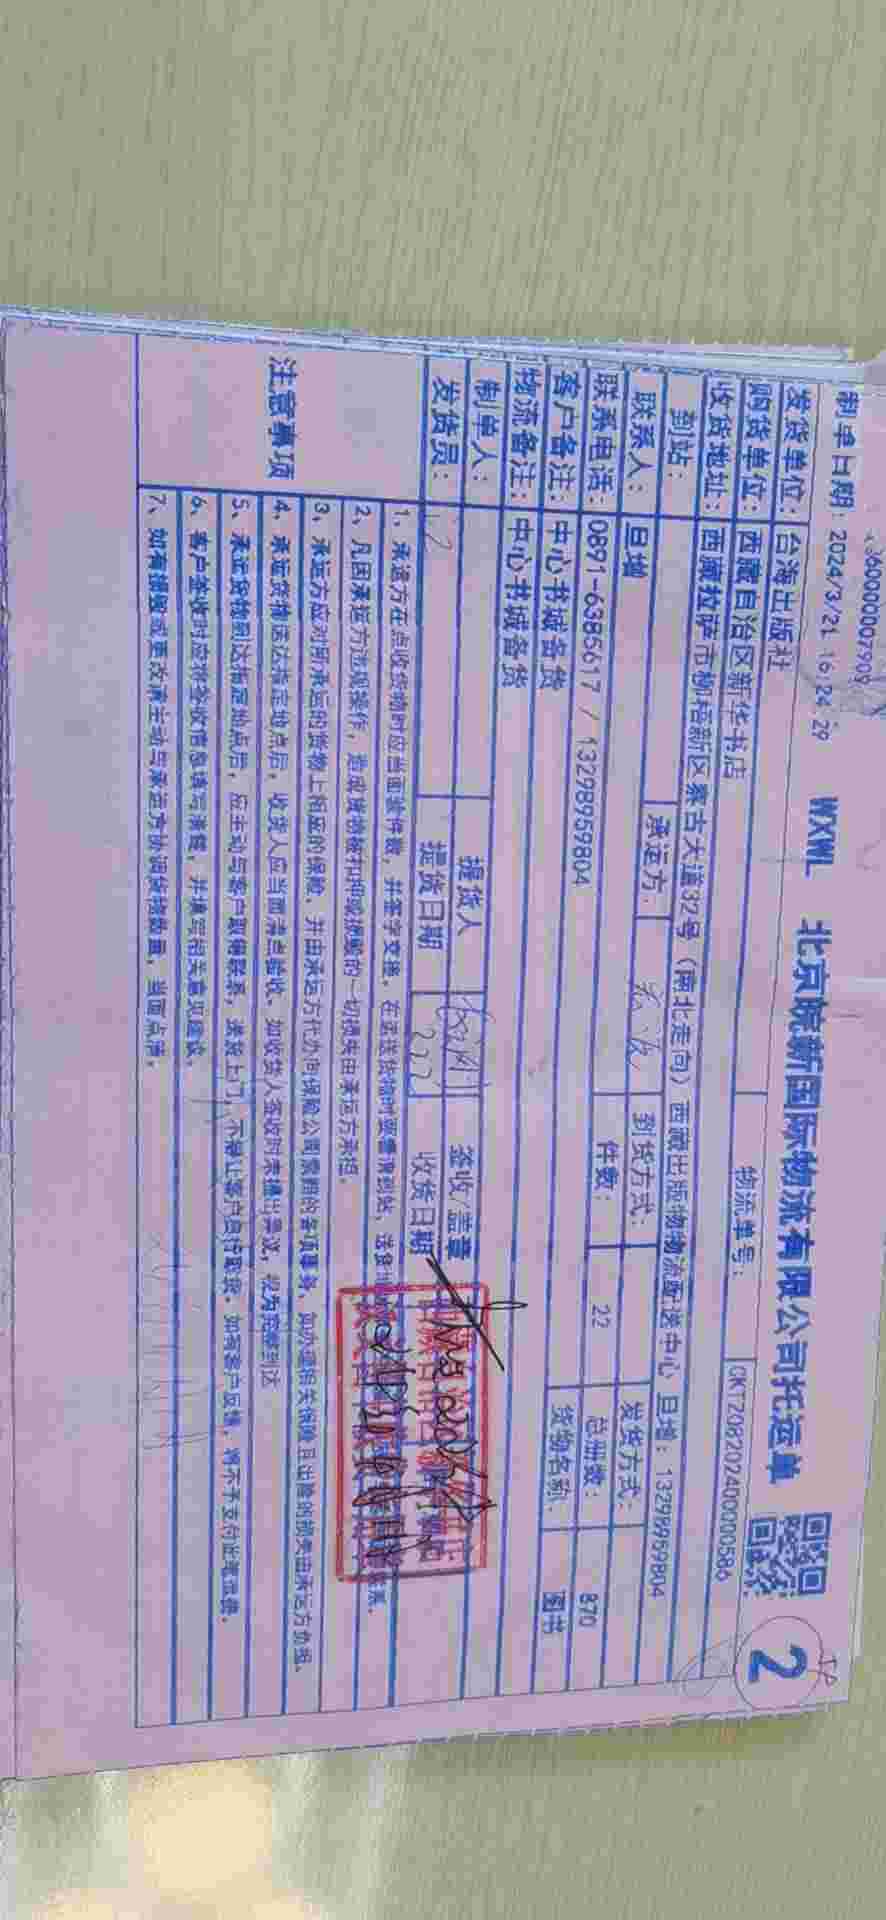 360000007909
制单日期：2024/3/21 16:24:29 WXWL 北京皖新国际物流有限公司托运单
2
发货单位：台海出版社 物流单号： CKTZ0820240000586
购货单位：西藏自治区新华书店
收货地址：西藏拉萨市柳梧新区蒙古大道32号（南北走向）西藏出版物物流配送中心 旦增：13298959804
到站： 承运方： 到货方式： 发货方式：
联系人：旦增 件数： 22 总册数： 870
联系电话：0891-6385617 / 13298959804 货物名称： 图书
客户备注：中心书城备货
物流备注：中心书城备货
制单人： 提货人 签收/盖章
发货员： 提货日期 收货日期
注意事项
1、承运方在点收货物时应当面验件数，并签字交接，在运送货物时要看清到站，送货
2、凡因承运方违规操作，造成货物被扣押或损毁的一切损失由承运方承担。
3、承运方应对所承运的货物上相应的保险，并由承运方代办向保险公司索赔的各项事务，如办理相关保险且出险的损失由承运方负担。
4、承运货物送达指定地点后，收货人应当面清点验收，如收货人签收时未提出异议，视为完整到达
5、承运货物到达指定地点后，应主动与客户取得联系，送货上门，不得让客户自行取货。如有客户反馈，将不予支付此笔运费。
6、客户签收时应将签收信息填写清楚，并填写相关意见建议。
7、如有提现或更改请主动与承运方协调货物数量，当面点清。